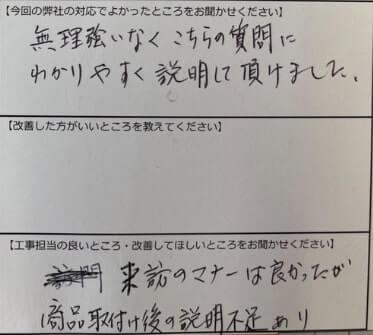 【今回の弊社の対応でよかったところをお聞かせください】
無理強いなく こちらの質問に
わかりやすく説明して頂けました。
【改善した方がいいところを教えてください】
【工事担当の良いところ・改善してほしいところをお聞かせください】
来訪のマナーは良かったが
商品取付け後の説明不足あり